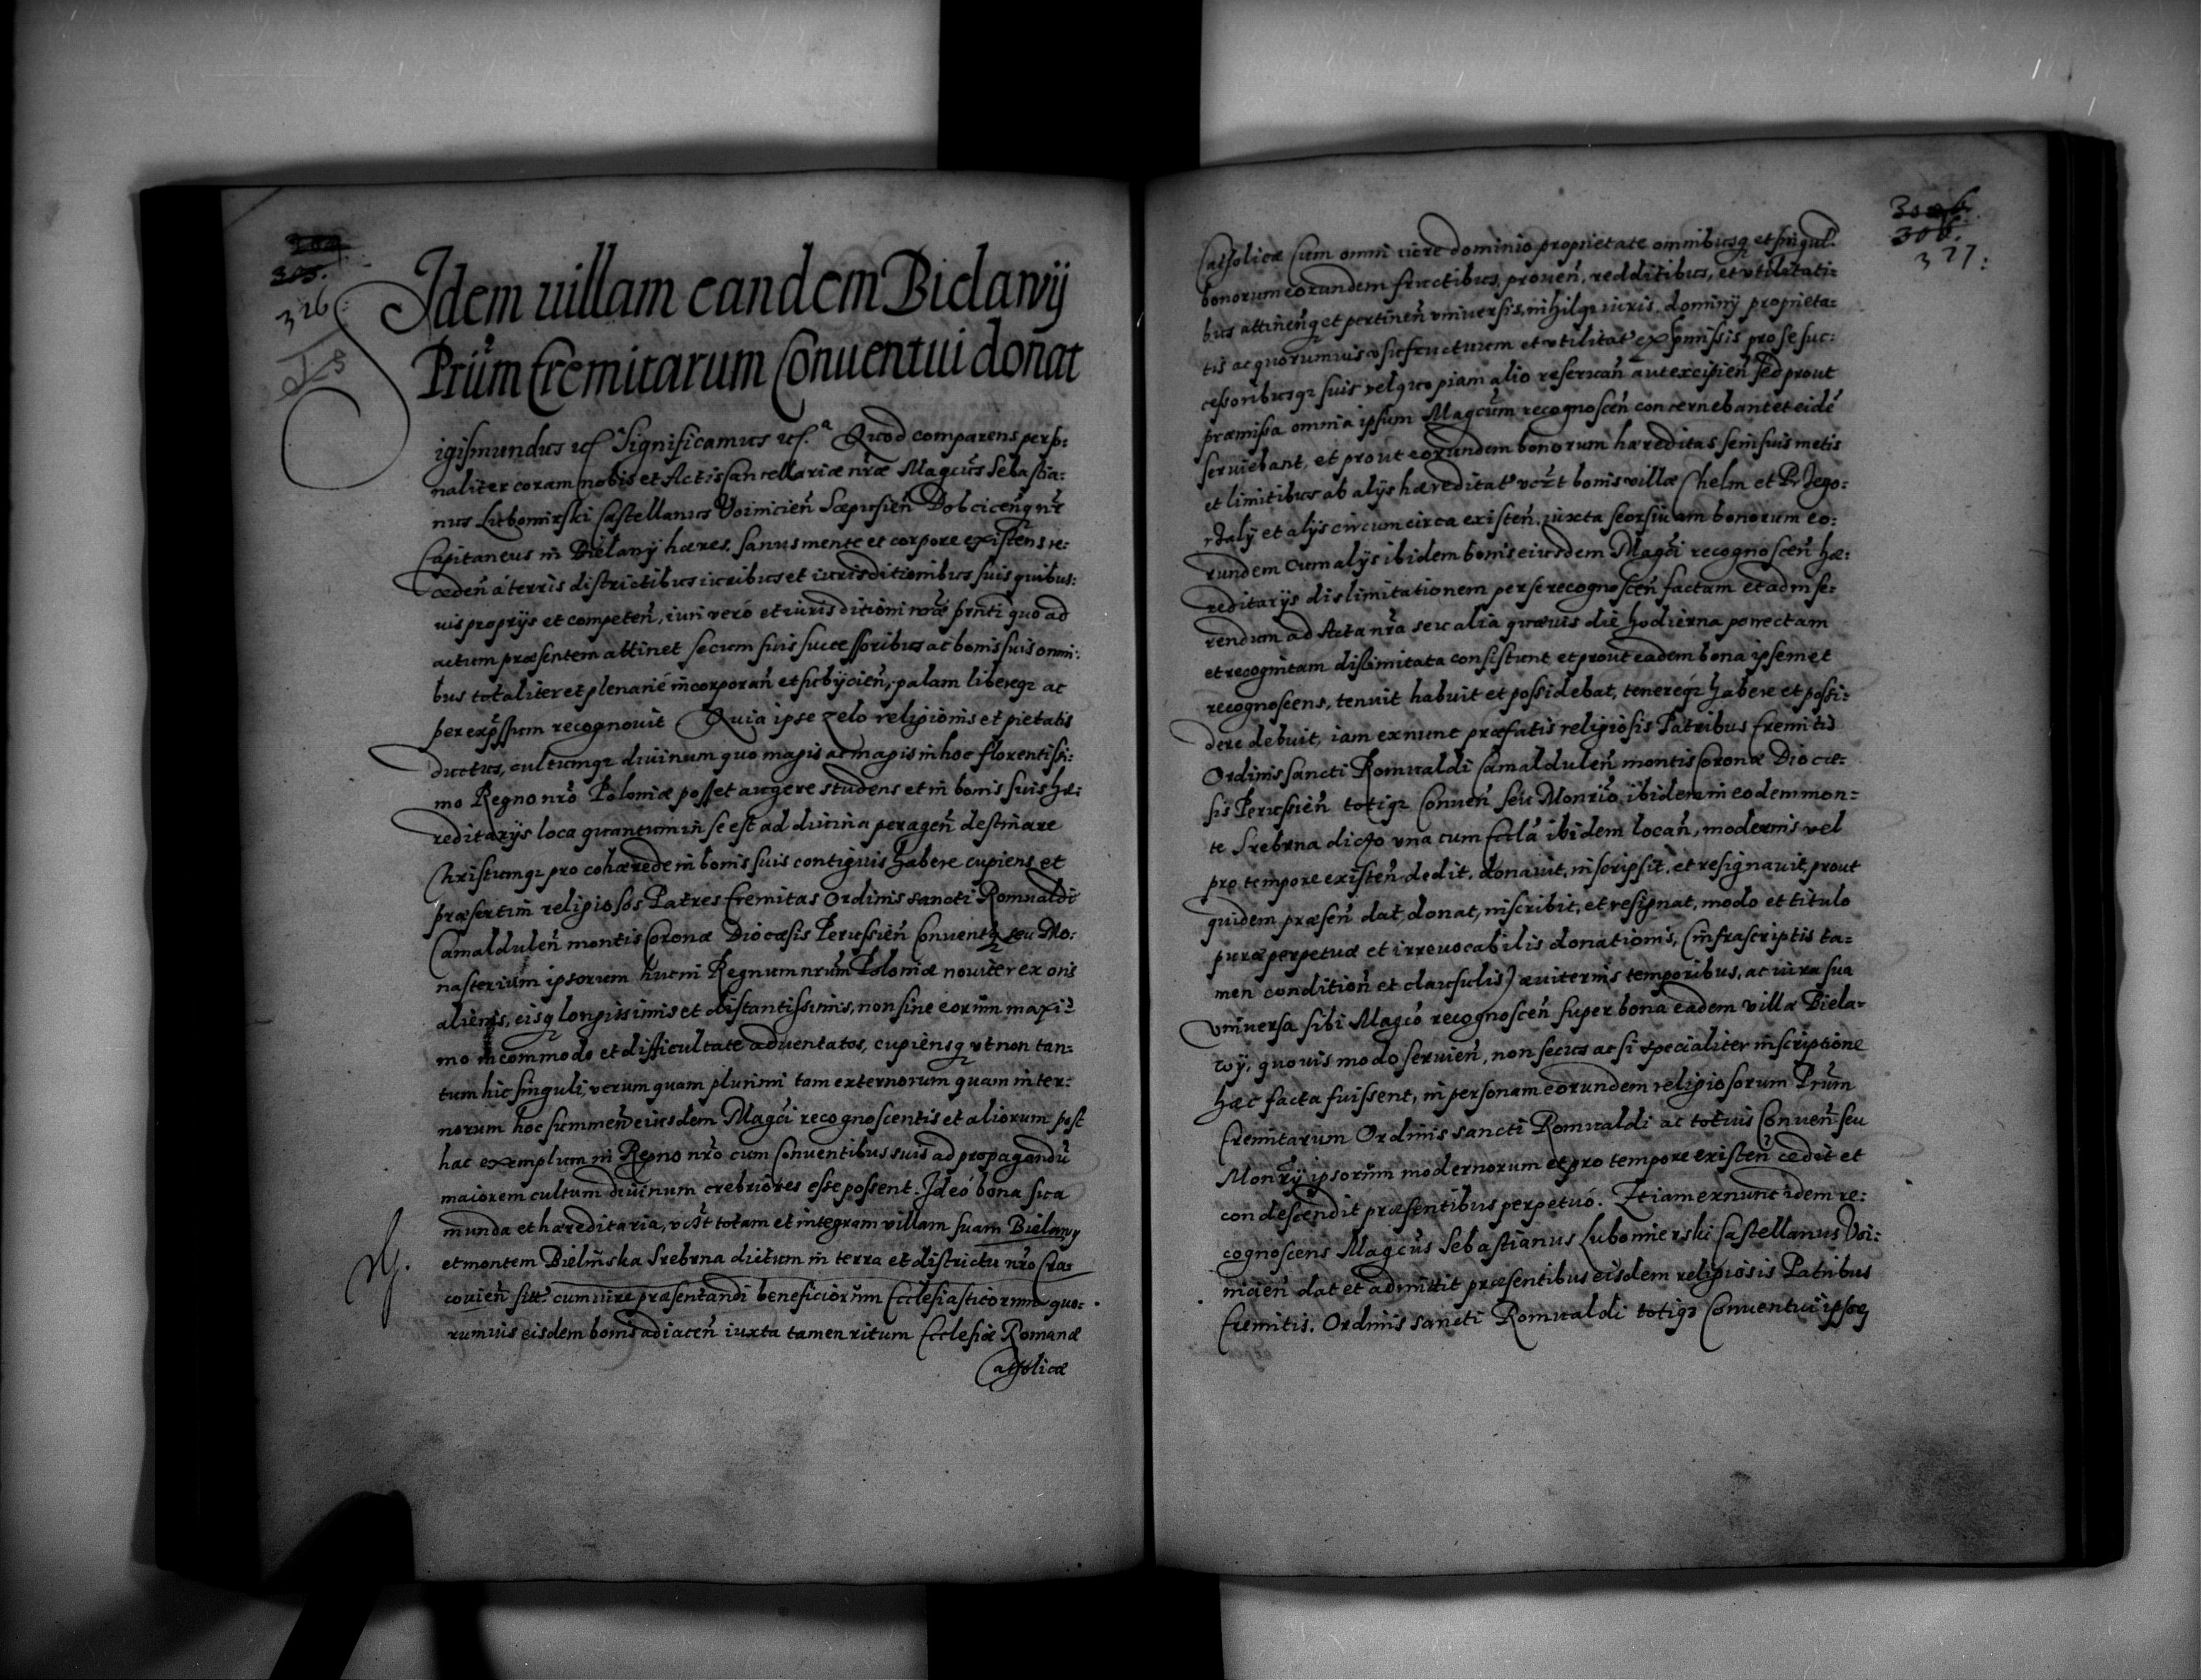 304.
305.
326:
Idem uillam eandem Bielawÿ
Prũm Eremitarum Conuentui donat
igismundus ɾc̃ Significamus ɾc̃.ª Quod comparens perso:
naliter coram nobis et Actis Cancellariæ nr̃æ Magcũs Sebastia:
nus Lubomirski Castellanus Voinicień Scepusień Dobciceńq nr̃
Capitaneus in Bielany hæres. sanus mente et corpore existens re:
cedeń á terris districtibus iuribus et iurisditionibus suis quibus:
uis proprijs et competeń, iuri veró et iurisditioni nr̃æ pr̃nti quo ad
actum præsentem attinet se cum suis successoribus ac bonis suis omni:
bus totaliter et plenarié incorporań et subijcień, palam libereqz ac
per expr̃ssum recognouit Quia ipse zelo religionis et pietatis
ductus, cultumqz diuinum quo magis ac magis in hoc florentissi:
mo Regno nr̃o Poloniæ posset augere studens et in bonis suis hæ:
reditarijs loca quantum in se est ad diuina perageń destinare
Christumqz pro cohærede in bonis suis contiguis habere cupiens et
præsertim religiosos Patres Eremitas Ordinis sancti Romualdi
Camalduleń montis Coronæ Diocæsis Perussień Conuentq seu Mo:
nasterium ipsorum huc in Regnum nr̃um Poloniæ nouiter ex oris
alienis, eisq longissimis et distantissimis, non sine eorum maxi:
mo incommodo et difficultate aduentatos, cupiensq vt non tan:
tum hic singuli, verum quam plurimi tam externorum quam inter:
norum hoc eiusdem Magc̃i recognoscentis et aliorum post
hac exemplum in Regno nr̃o cum Conuentibus suis ad propagandũ
maiorem cultum diuinum crebriores esse possent. Ideó bona sua
munda et hæreditaria, vcz̃t totam et integram villam suam Bielany
et montem Bielinska Srebrna dictum in terra et districtu nr̃o Cra:
couień sitt: cum iure præsentandi beneficiorum Ecclesiasticorum quo:
rumuis eisdem bonis adiaceń iuxta tamen ritum Ecclesiæ Romanæ
Catholicæ
306.
327:
Catholicæ Cum omni iure dominio proprietate omnibusq et singul:
bonorum eorundem fructibus, proueń, redditibus, et vtilitati:
bus attineńq et pertineń vniuersis, nihilqz iuris, dominij proprieta:
tis ac quorumuis vsufructuum et vtilitat ex pr̃missis pro se suc:
cessoribusqz suis vel quopiam alio reseruań aut excipień Sed prout
præmissa omnia ipsum Magcũm recognosceń concernebant et eidẽ
seruiebant, et prout eorundem bonorum hæreditas se in suis metis
et limitibus ab alijs hæreditat vcz̃t bonis villæ Chelm et Przego:
rzaly et alijs circumcirca existeń, iuxta seorsiuam bonorum eo:
rundem cum alijs ibidem bonis eiusdem Magc̃i recognosceń hæ:
reditarijs dislimitationem per se recognosceń factam et ad inse:
rendum ad Acta nr̃a seu alia quæuis die hodierna porrectam
et recognitam dislimitata consistunt, et prout eadem bona ipsemet
recognoscens, tenuit habuit et possidebat, tenereqz habere et possi:
dere debuit, iam ex nunc præfatis religiosis Patribus Eremitis
Ordinis sancti Romualdi Camalduleń montis Coronæ Diocæ:
sis Perussień totiqz Conueń seu Monrio ibidem in eodem mon=
te Srebrna dicto vna cum Eccľa ibidem locań, modernis vel
pro tempore existeń dedit, donauit, inscripsit, et resignauit, prout
quidem præseń dat, donat, inscribit, et resignat, modo et titulo
puræ perpetuæ et irreuocabilis donationis, (infrascriptis ta=
men conditioń et clausulis) æuiternis temporibus, ac iura sua
vniuersa sibi Magcó recognosceń super bona eadem villæ Biela-
wÿ, quouis modo seruień, non secus ac si specialiter inscriptione
hæc facta fuissent, in personam eorundem religiosorum Prũm
Eremitarum Ordinis sancti Romualdi ac totius Conueń seu
Monrÿ ipsorum modernorum et pro tempore existeń cedit et
condescendit præsentibus perpetuó. Etiam ex nunc idem re:
cognoscens Magcũs Sebastianus Lubomierski Castellanus Voi:
nicień dat et admittit præsentibus eisdem religiosis Patribus
Eremitis. Ordinis sancti Romualdi totiqz Conuentui ipsoꝝ